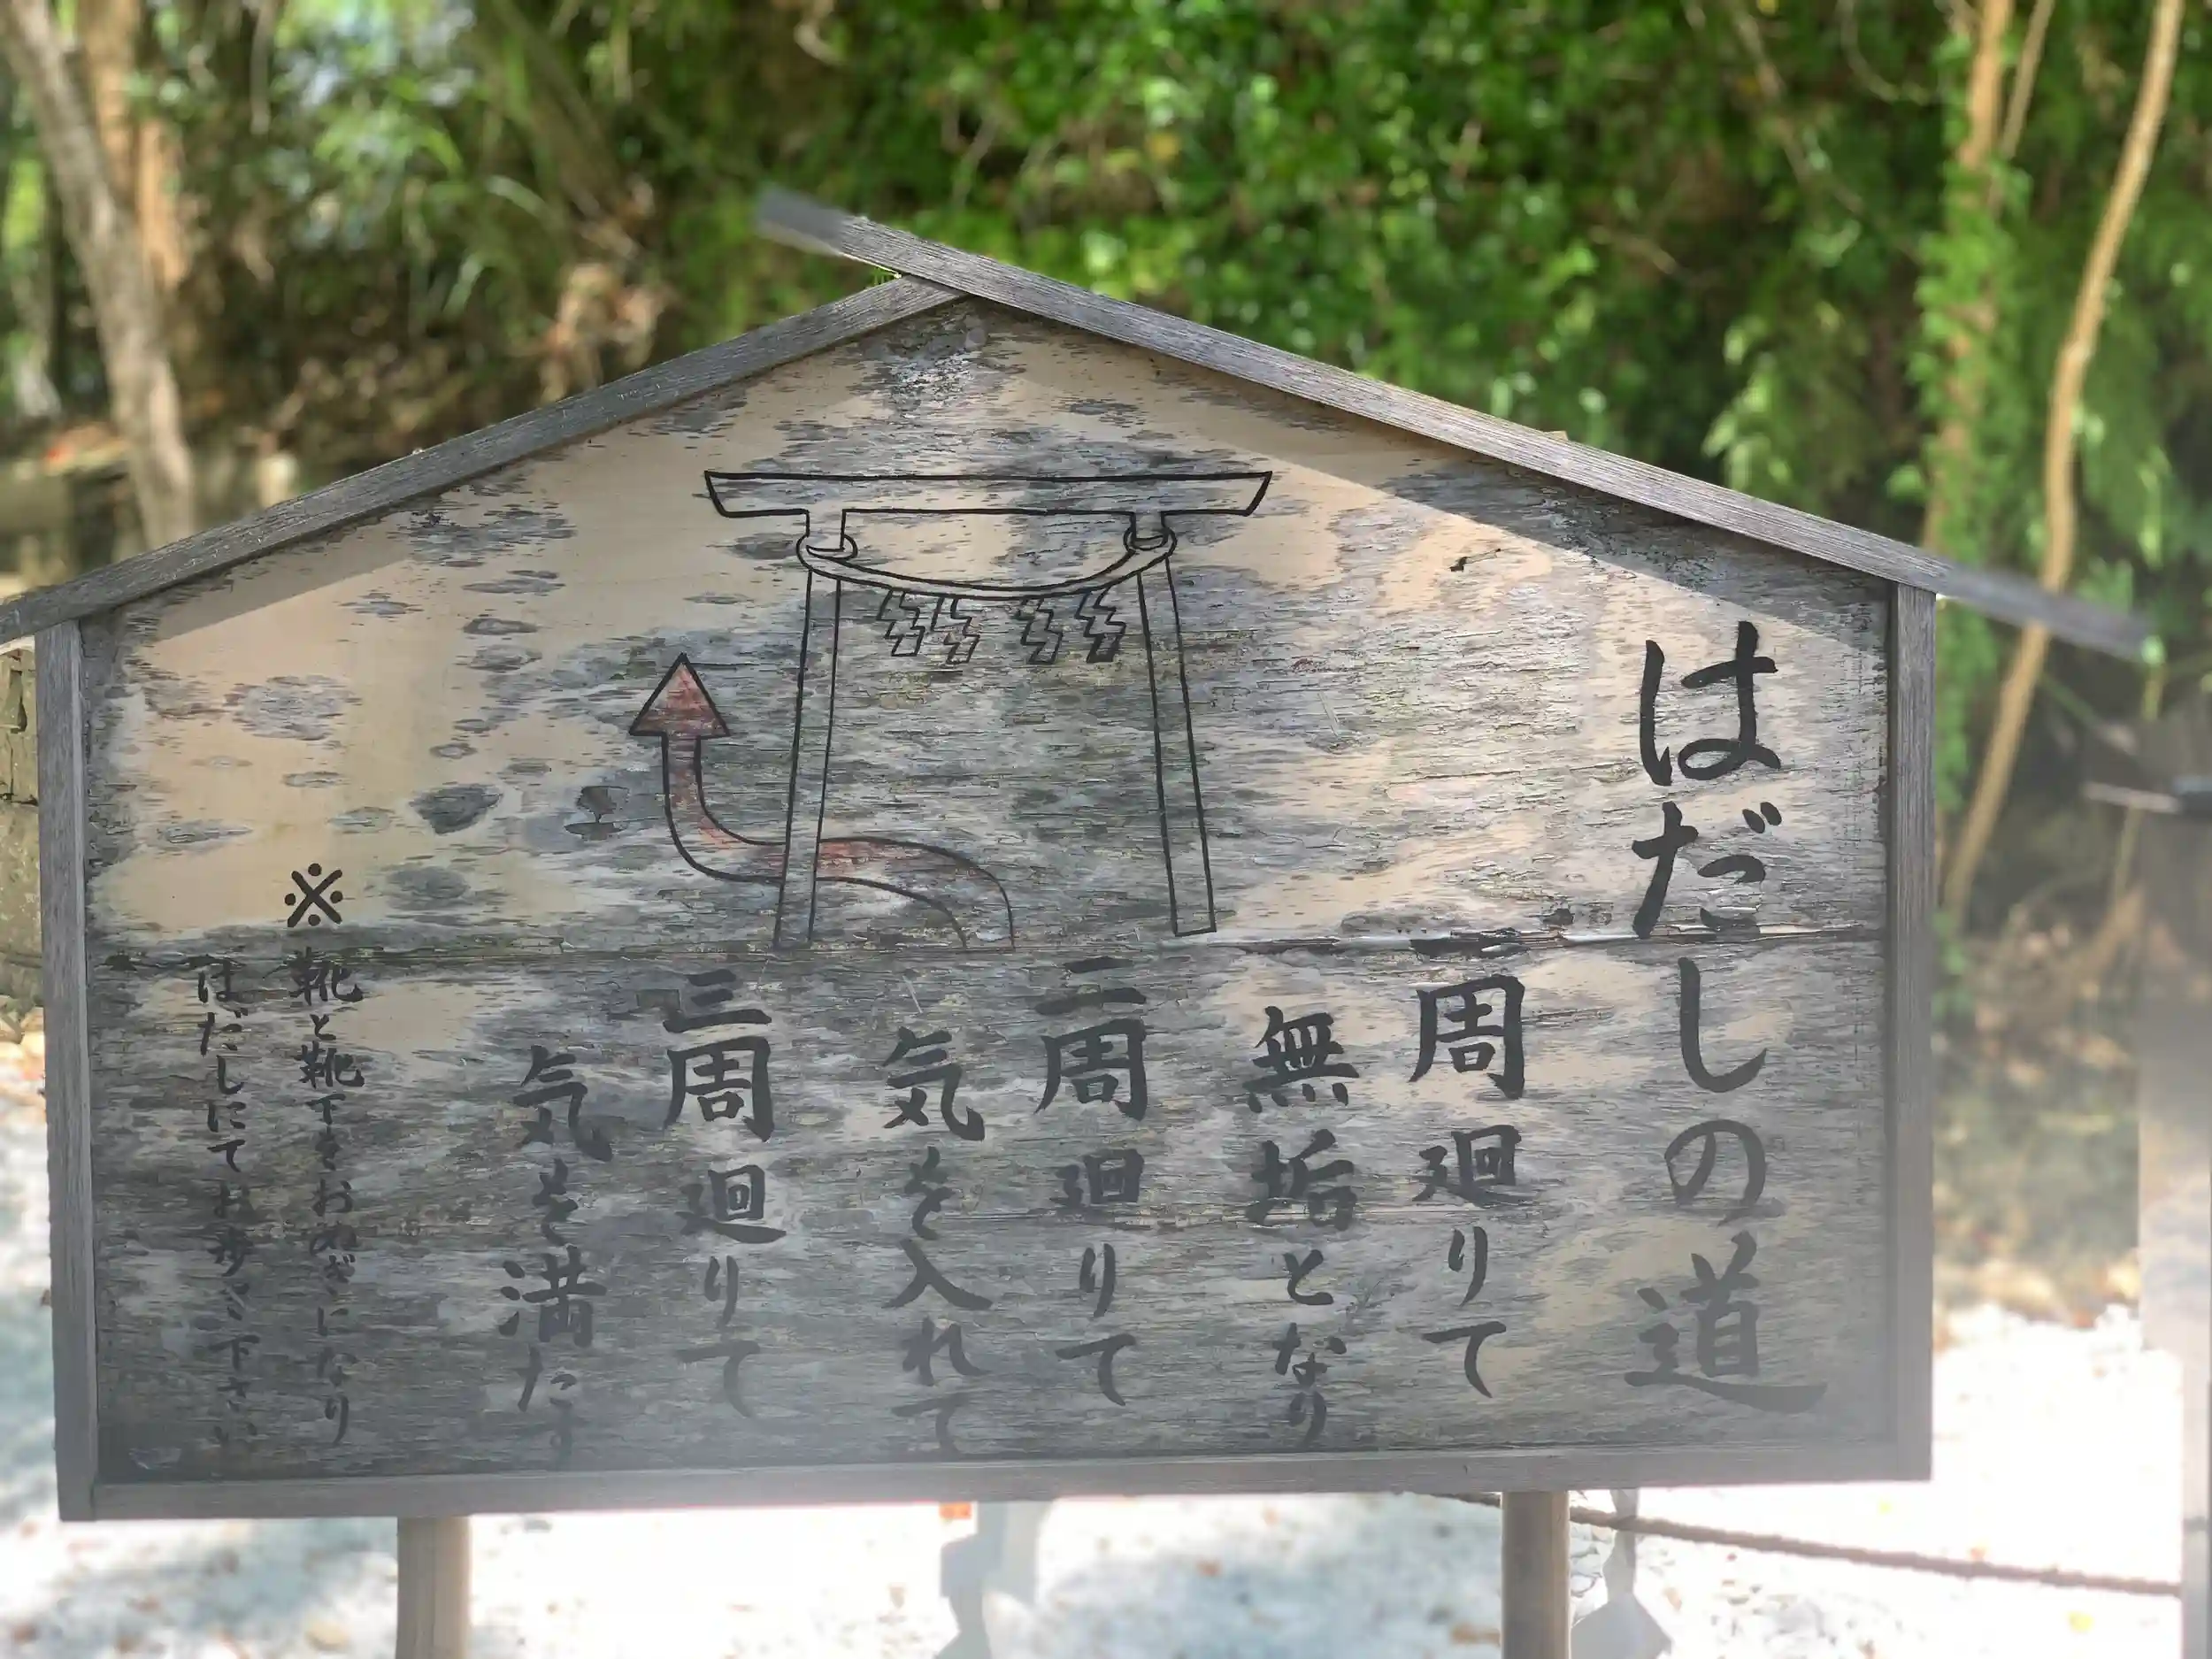 はだしの道
一周廻りて
無垢となり
二周廻りて
気を入れて
三周廻りて
気を満たす
※靴と靴下をおぬぎになり
はだしにてお歩み下さい